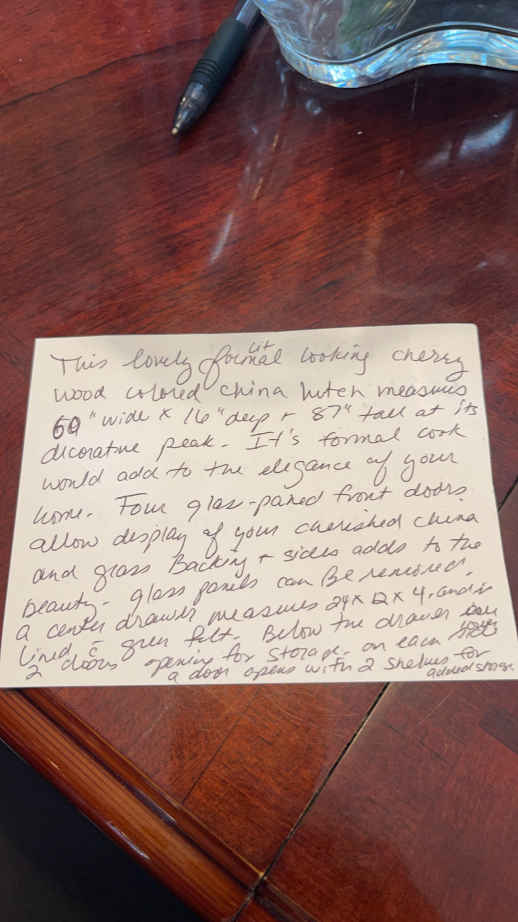 This lovely lit formal looking cherry
wood colored china hutch measures
60" wide x 16" deep + 87" tall at its
decorative peak. It's formal look
would add to the elegance of your
home. Four glass-paned front doors
allow display of your cherished china
and glass Backing + sides adds to the
beauty. glass panels can Be removed.
a center drawer measures 24 x 12 x 4, and is
lined c green felt. Below the drawer
2 doors opening for storage. on each side
a door opens with 2 shelves for
added storage.